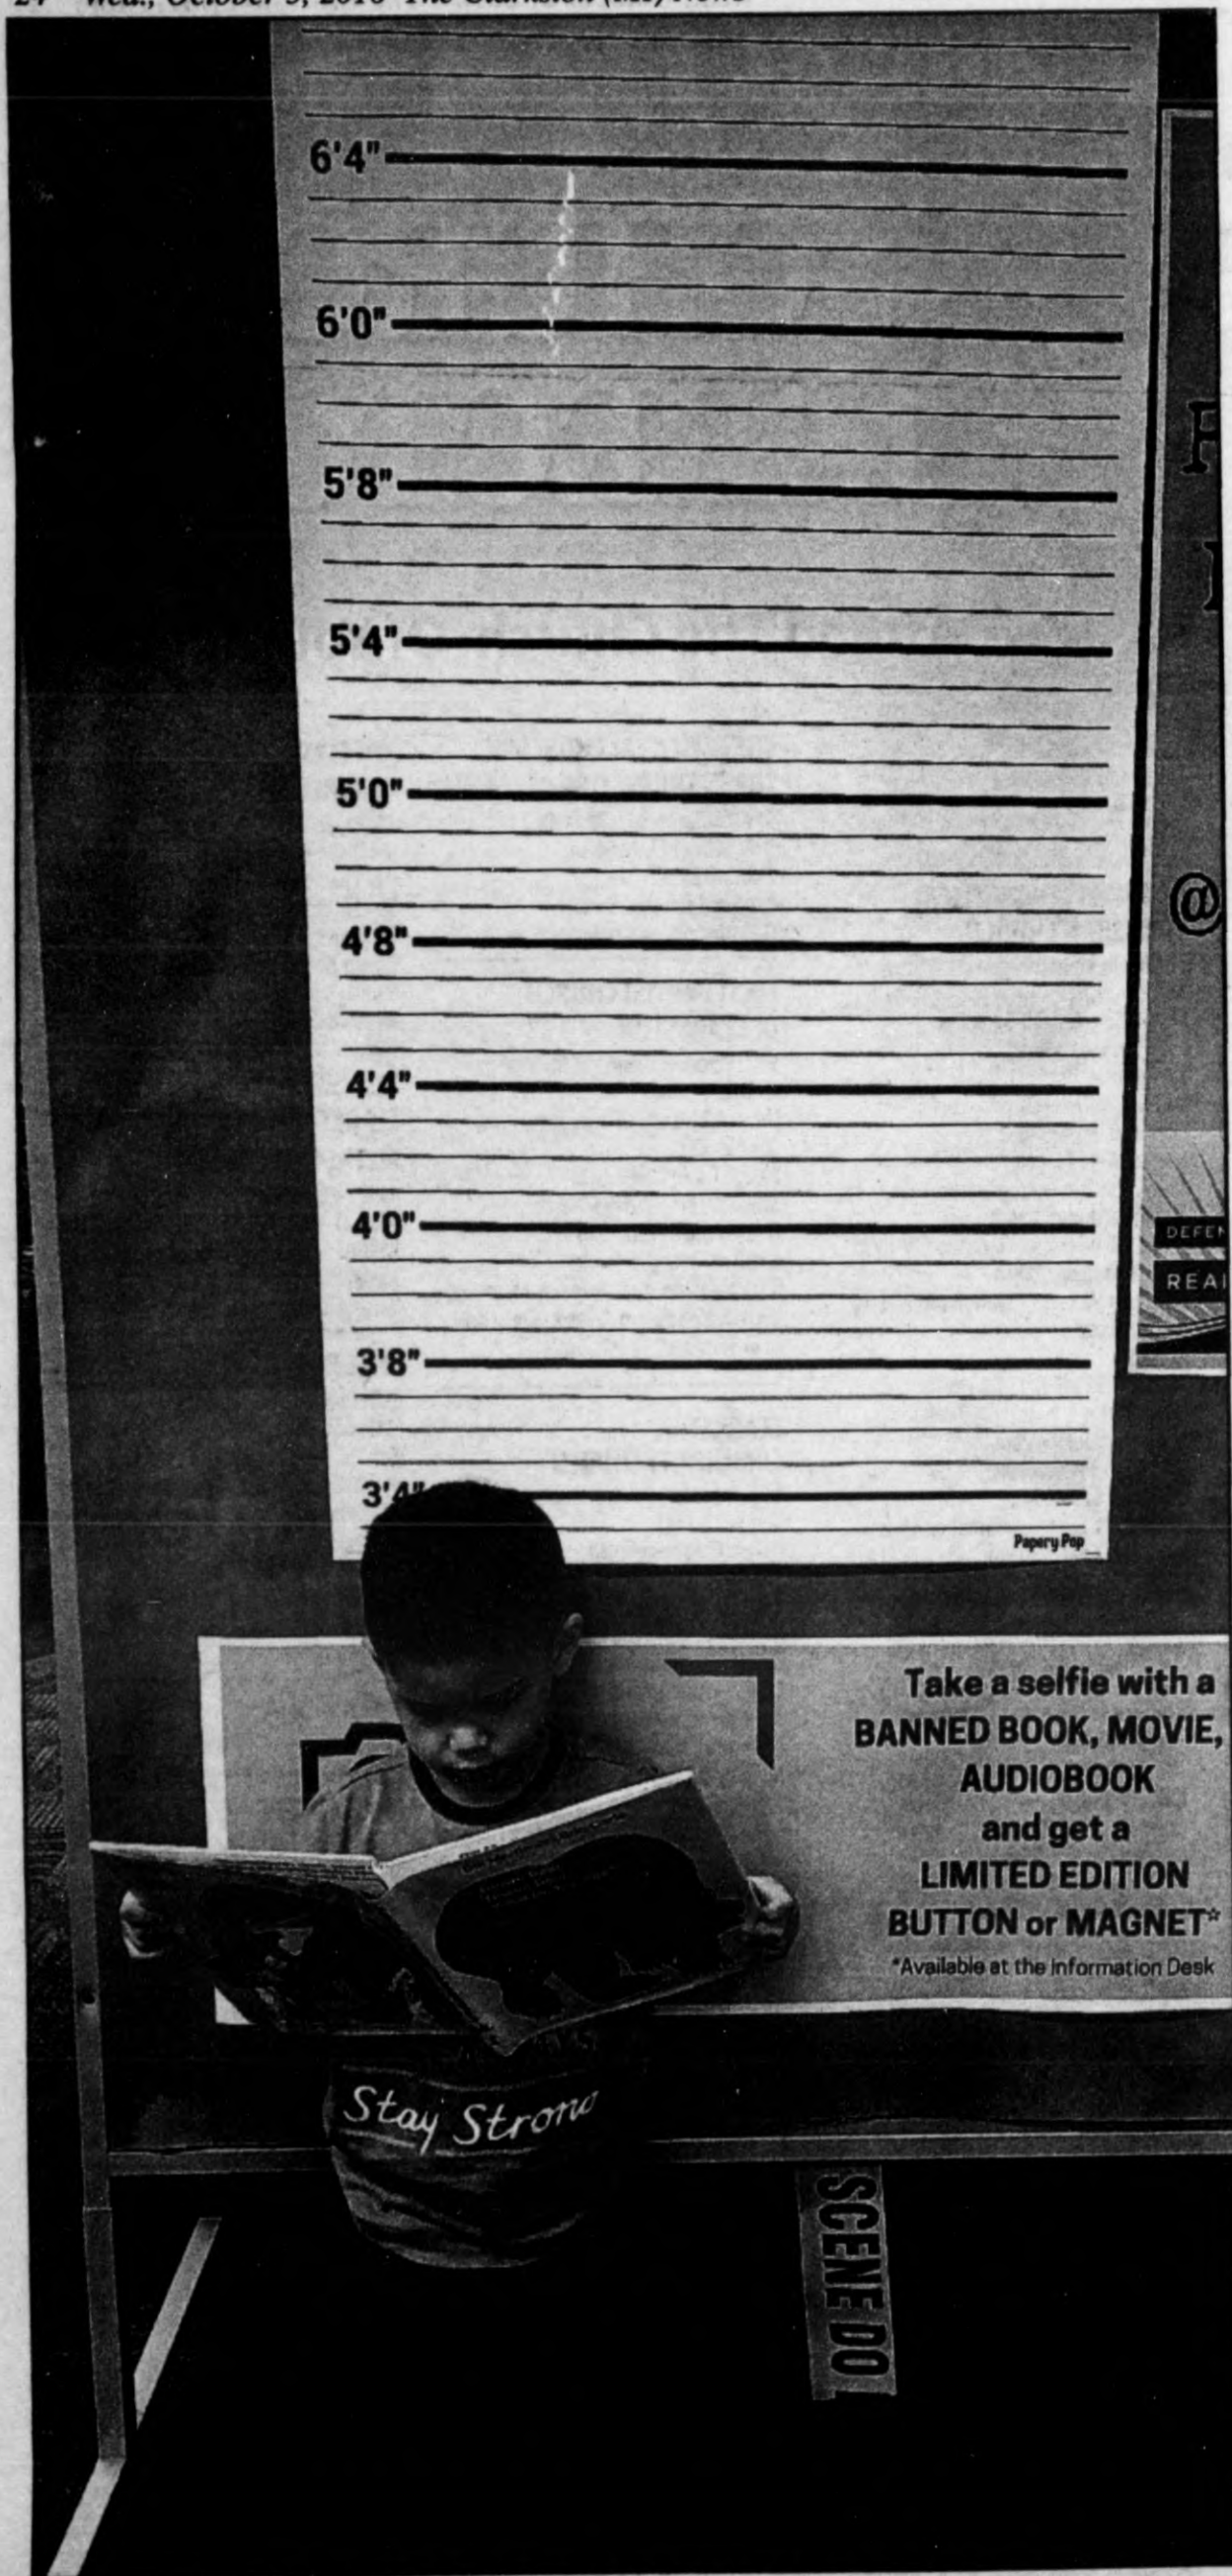 24 Wed., October 5, 2016 The Clarkston (MI) News
6'4"
6'0"
5'8"
5'4"
5'0"
4'8"
4'4"
4'0"
3'8"
3'4"
Papery Pop
@
DEFEN
REA
Take a selfie with a
BANNED BOOK, MOVIE,
AUDIOBOOK
and get a
LIMITED EDITION
BUTTON or MAGNET*
*Available at the Information Desk
Stay Strong
SCENE DO